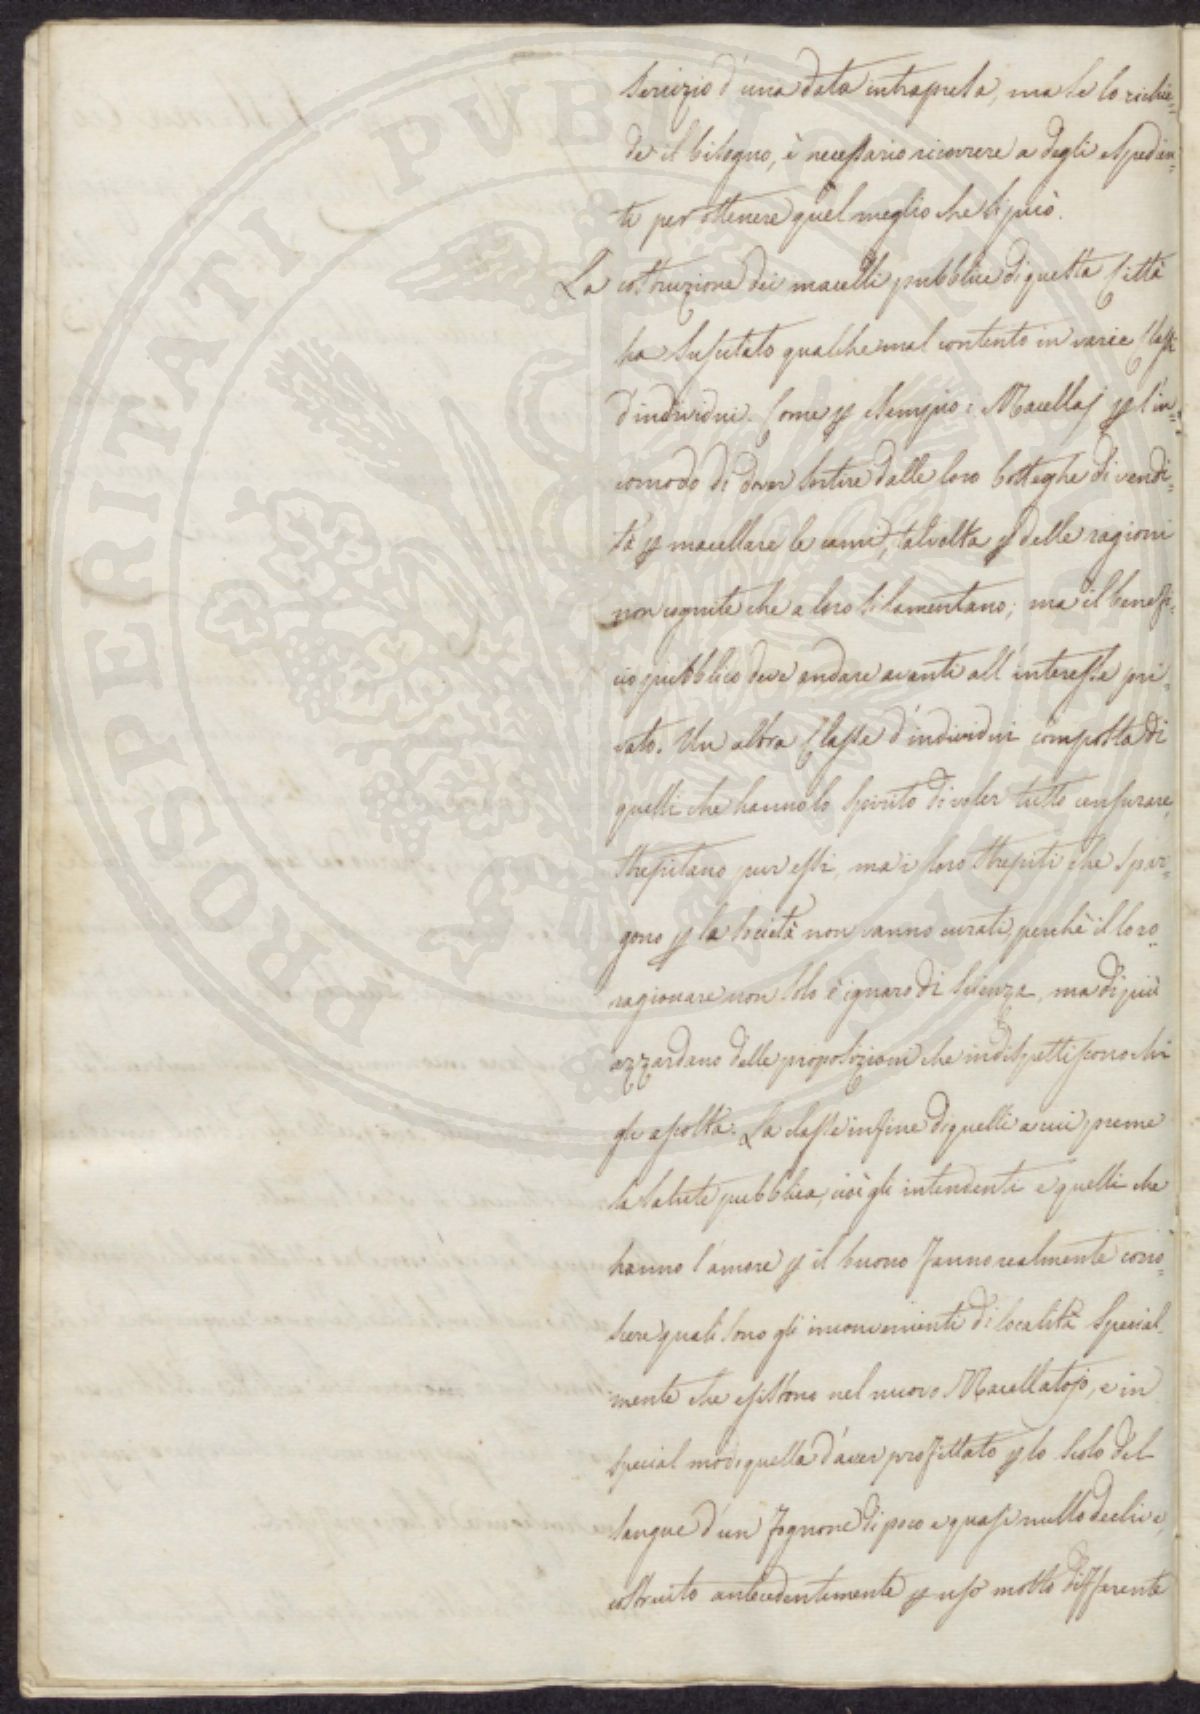 servizio d'una data intrapresa, ma se lo richie=
de il bisogno, è necessario ricorrere a degli espedien=
ti per ottenere quel meglio che si può.
La costruzione dei macelli pubblici di questa Città
ha suscitato qualche mal contento in varie Classi
d'individui. Come p esempio i Macellaj p l'in=
comodo di dover sortire dalle loro botteghe di vendi=
ta p macellare le carni, talvolta p delle ragioni
non cognite che a loro si lamentano; ma il benefi=
cio pubblico deve andare avanti all'interesse pri=
vato. Un altra Classe d'individui composta di
quelli che hanno lo spirito di voler tutto censurare,
strepitano pur essi, ma i loro strepiti che spar=
gono p la Società non vanno curati, perchè il loro
ragionare non solo è ignaro di scienza, ma di più
azzardano delle proposizioni che indispettiscono chi
gli ascolta. La classe infine di quelli a cui preme
la salute pubblica, cioè gli intendenti e quelli che
hanno l'amore p il buono fanno realmente cono=
scere quali sono gli inconvenienti di località special=
mente che esistono nel nuovo Macellatojo, e in
special modo quella d'aver profittato p lo scolo del
sangue d'un fognone di poco e quasi nullo declive,
costruito antecedentemente p uso molto differente
PROSPERITATI PUBLICAE